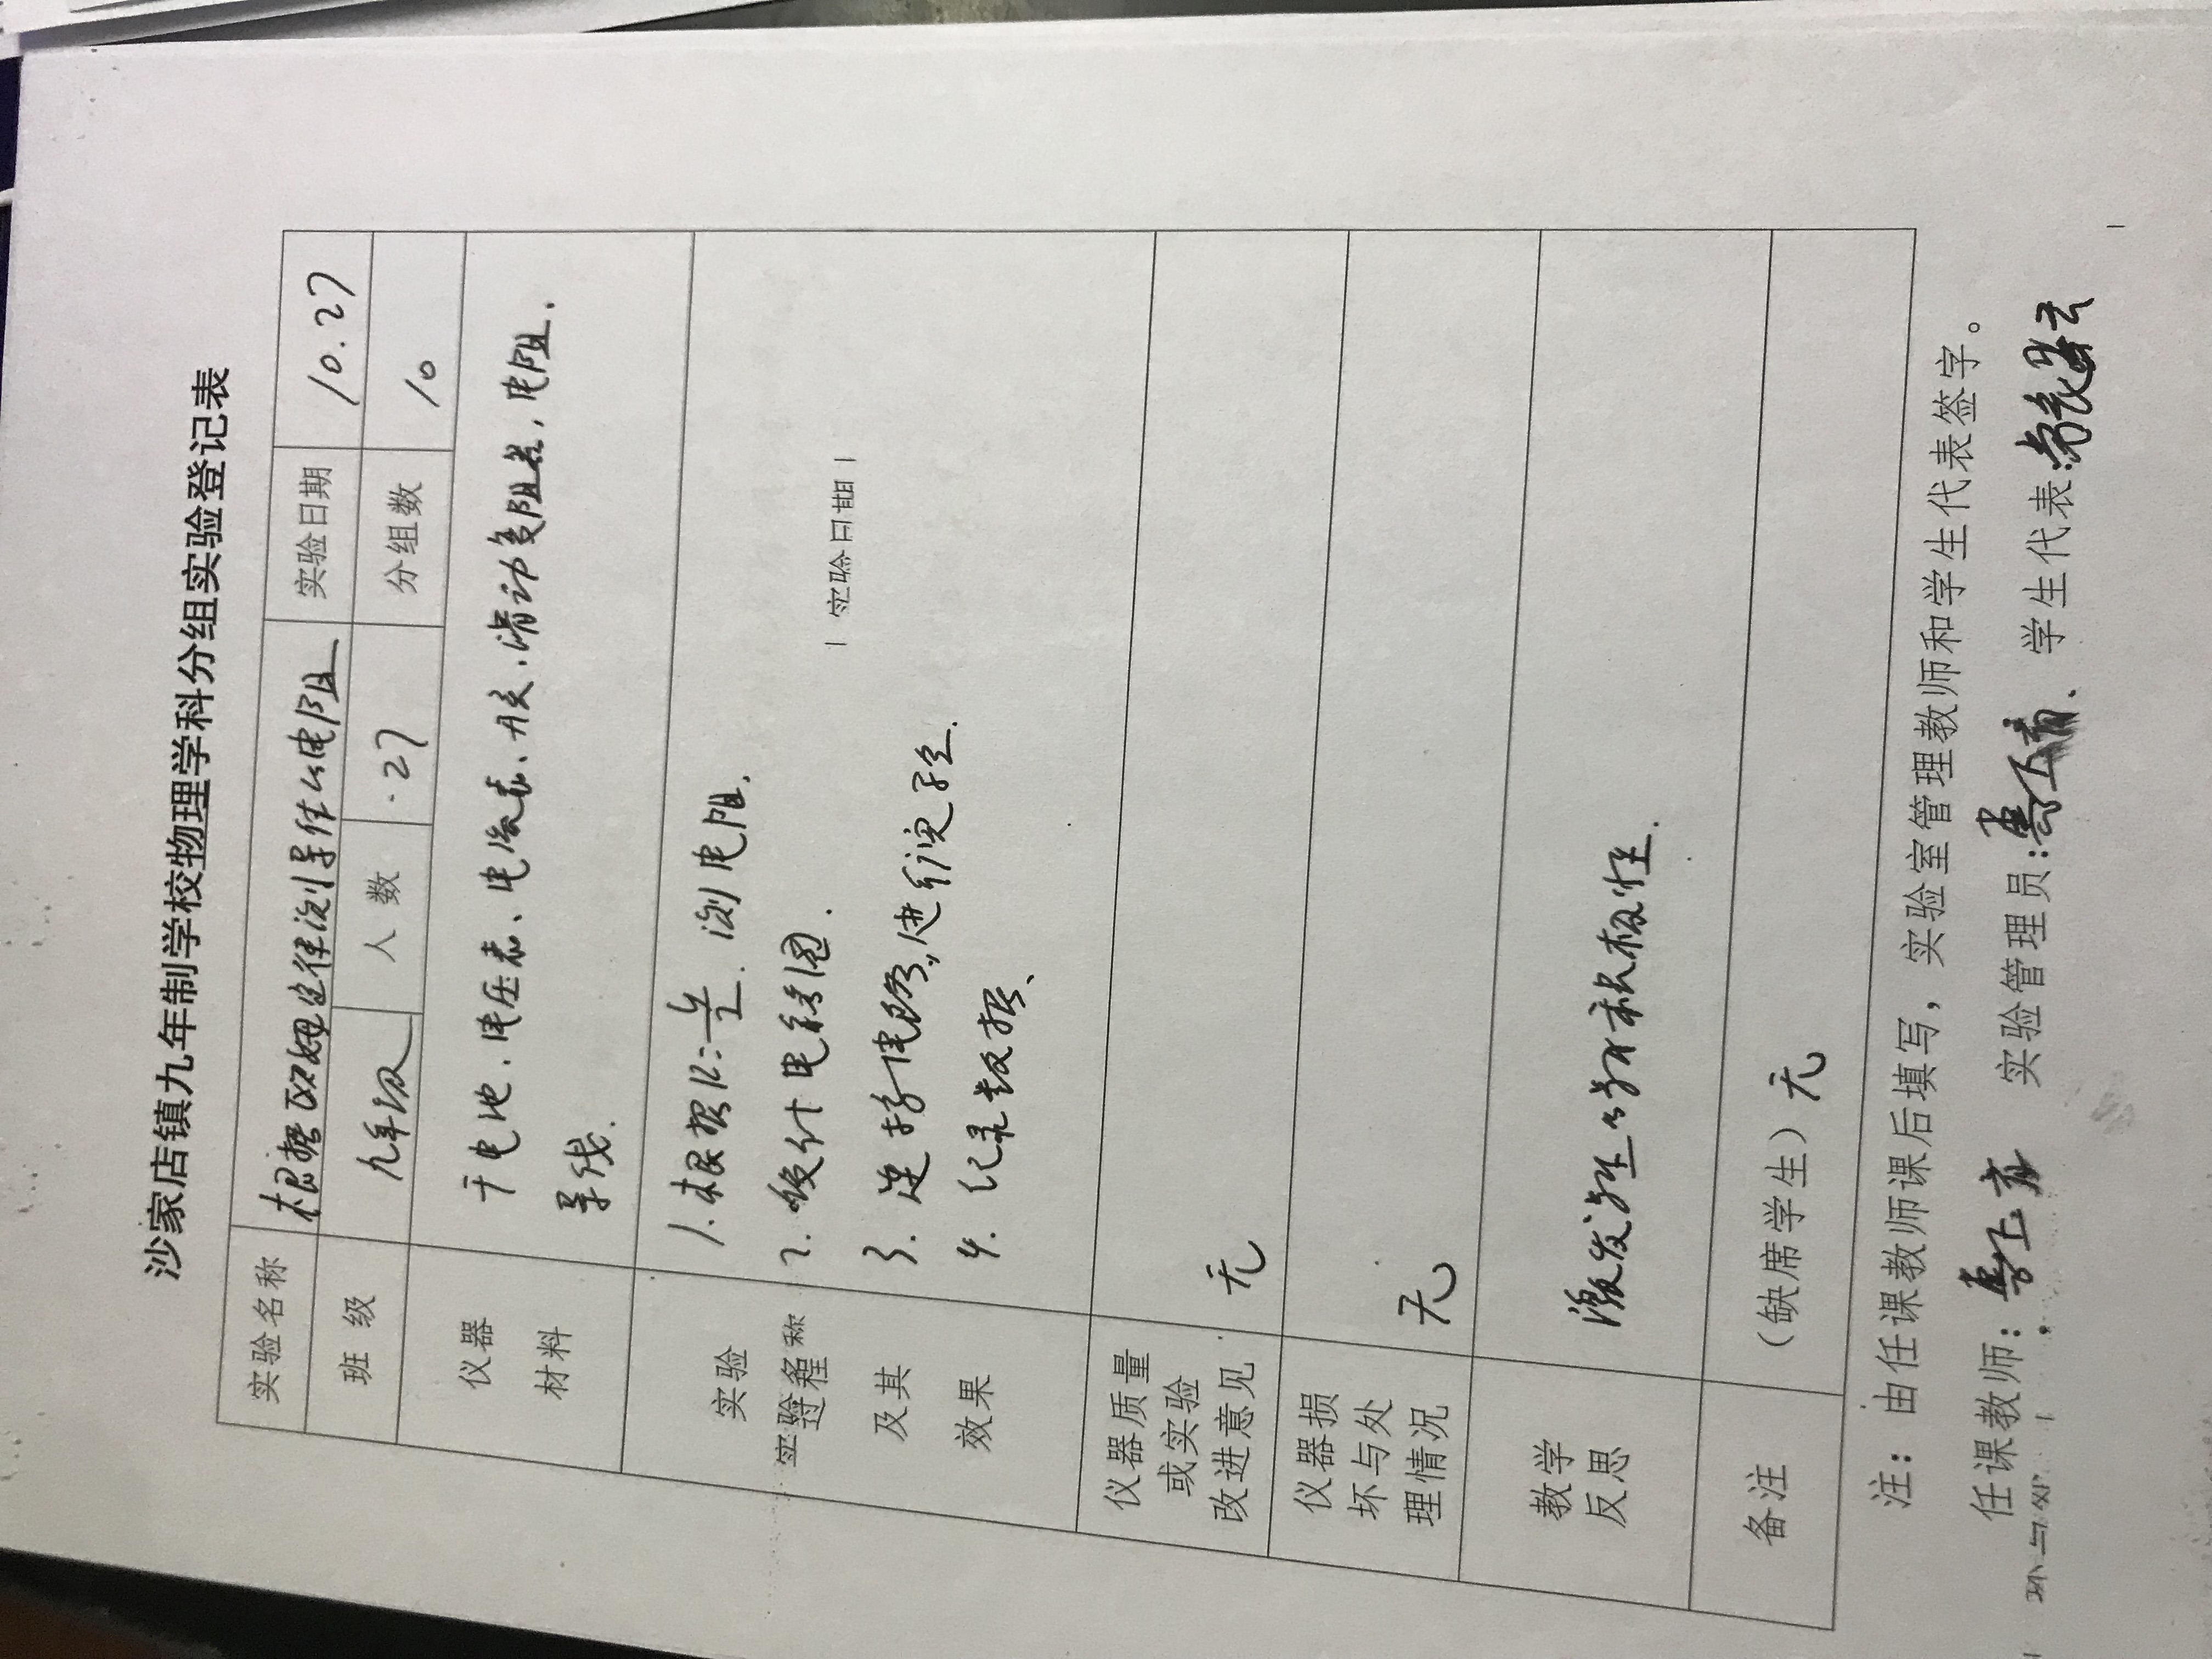 沙家店镇九年制学校物理学科分组实验登记表
实验名称 根据欧姆定律测导体的电阻 实验日期 10.27
班 级 九年级 人 数 27 分组数 10
仪器 干电池、电压表、电流表、开关、滑动变阻器,电阻.
材料 导线.
实验 1.根据R=U/I.测电阻.
实验名称
过程 2.设计电路图.
实验日期
及其 3.连接电路,进行实验.
效果 4.纪录数据、
仪器质量
或实验
改进意见 无
仪器损
坏与处
理情况 无
教学
反思 激发学生的学习积极性.
备注 (缺席学生)无
注:由任课教师课后填写,实验室管理教师和学生代表签字。
任课教师: 实验管理员: 学生代表:
坏与处